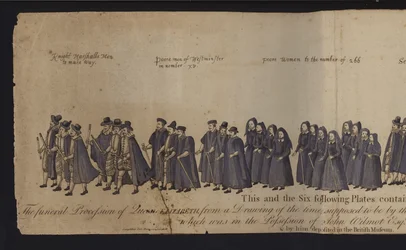 Knight Marshalls Men
to make way.
Poore men of Westminster
in number
poore Women to the number of 266
This and the Six following Plates contai
The funeral Procession of Queen Elizabeth, from a Drawing of the time, supposed to be by th
which was in the Possession of John Wilmot Esq
& by him deposited in the British Museum.